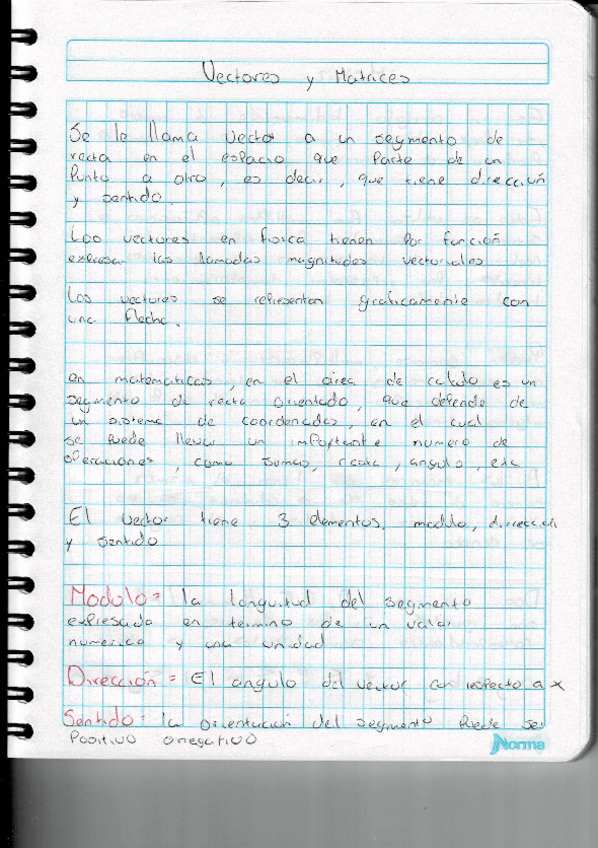 Vectores y Matrices
Se le llama vector a un segmento de
recta en el espacio que parte de un
Punto a otro, es decir, que tiene dirección
y sentido.
Los vectores en fisica tienen por función
expresar las llamadas magnitudes vectoriales
Los vectores se representan graficamente con
una flecha.
en matematicas, en el área de calculo es un
segmento de recta orientado, que depende de
un sistema de coordenadas, en el cual
se puede llevar un importante numero de
operaciones, como sumas, , angulo, etc
El vector tiene 3 elementos, modulo, dirección
y sentido
Modulo = la longuitud del segmento
expresado en termino de un valor
numerico y una unidad
Dirección = El angulo del vector con respecto a x
Sentido = la orientación del segmento puede ser
Positivo o negativo
Norma